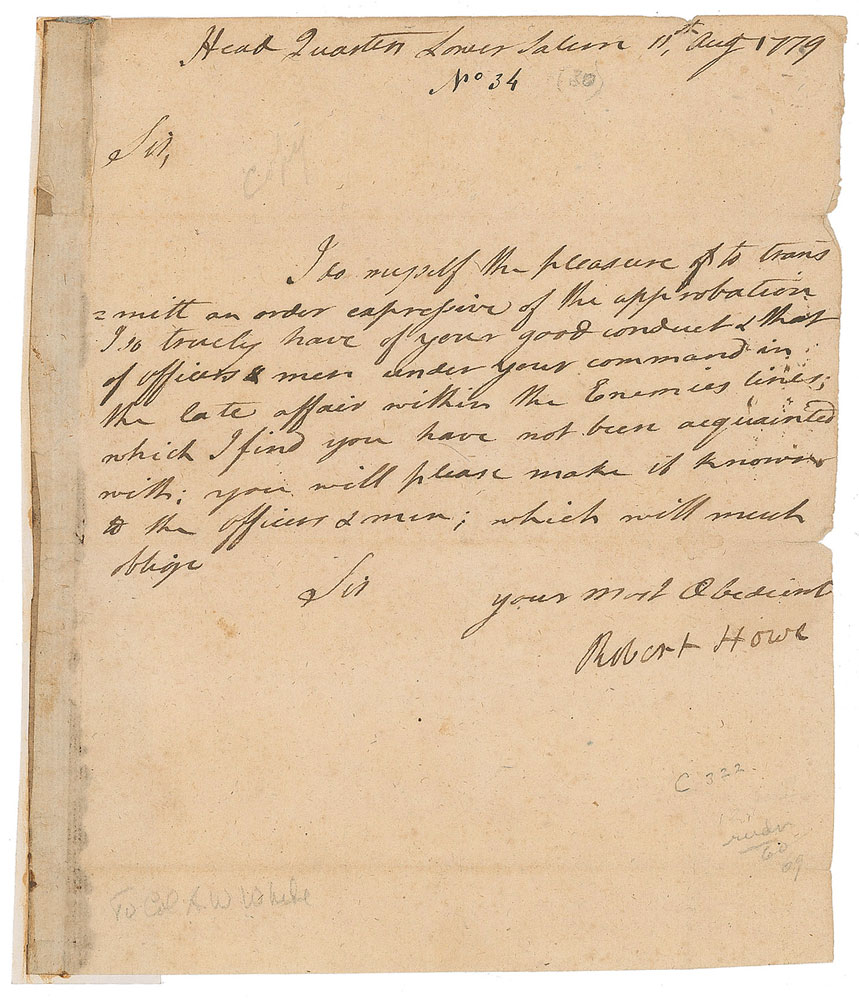 Head Quarters Lower Salem 11st, Aug 1779
No 34 (30)
Sir,
Copy
I do myself the pleasure to trans
= mitt an order expressive of the approbation
I so truely have of your good conduct & that
of officers & men under your command in
the late affair within the Enemies lines;
which I find you have not been acquainted
with; you will please make it known
to the officers & men; which will much
oblige
Sir your most Obedient
Robert Howe
C 322
60
09
To Col A W White